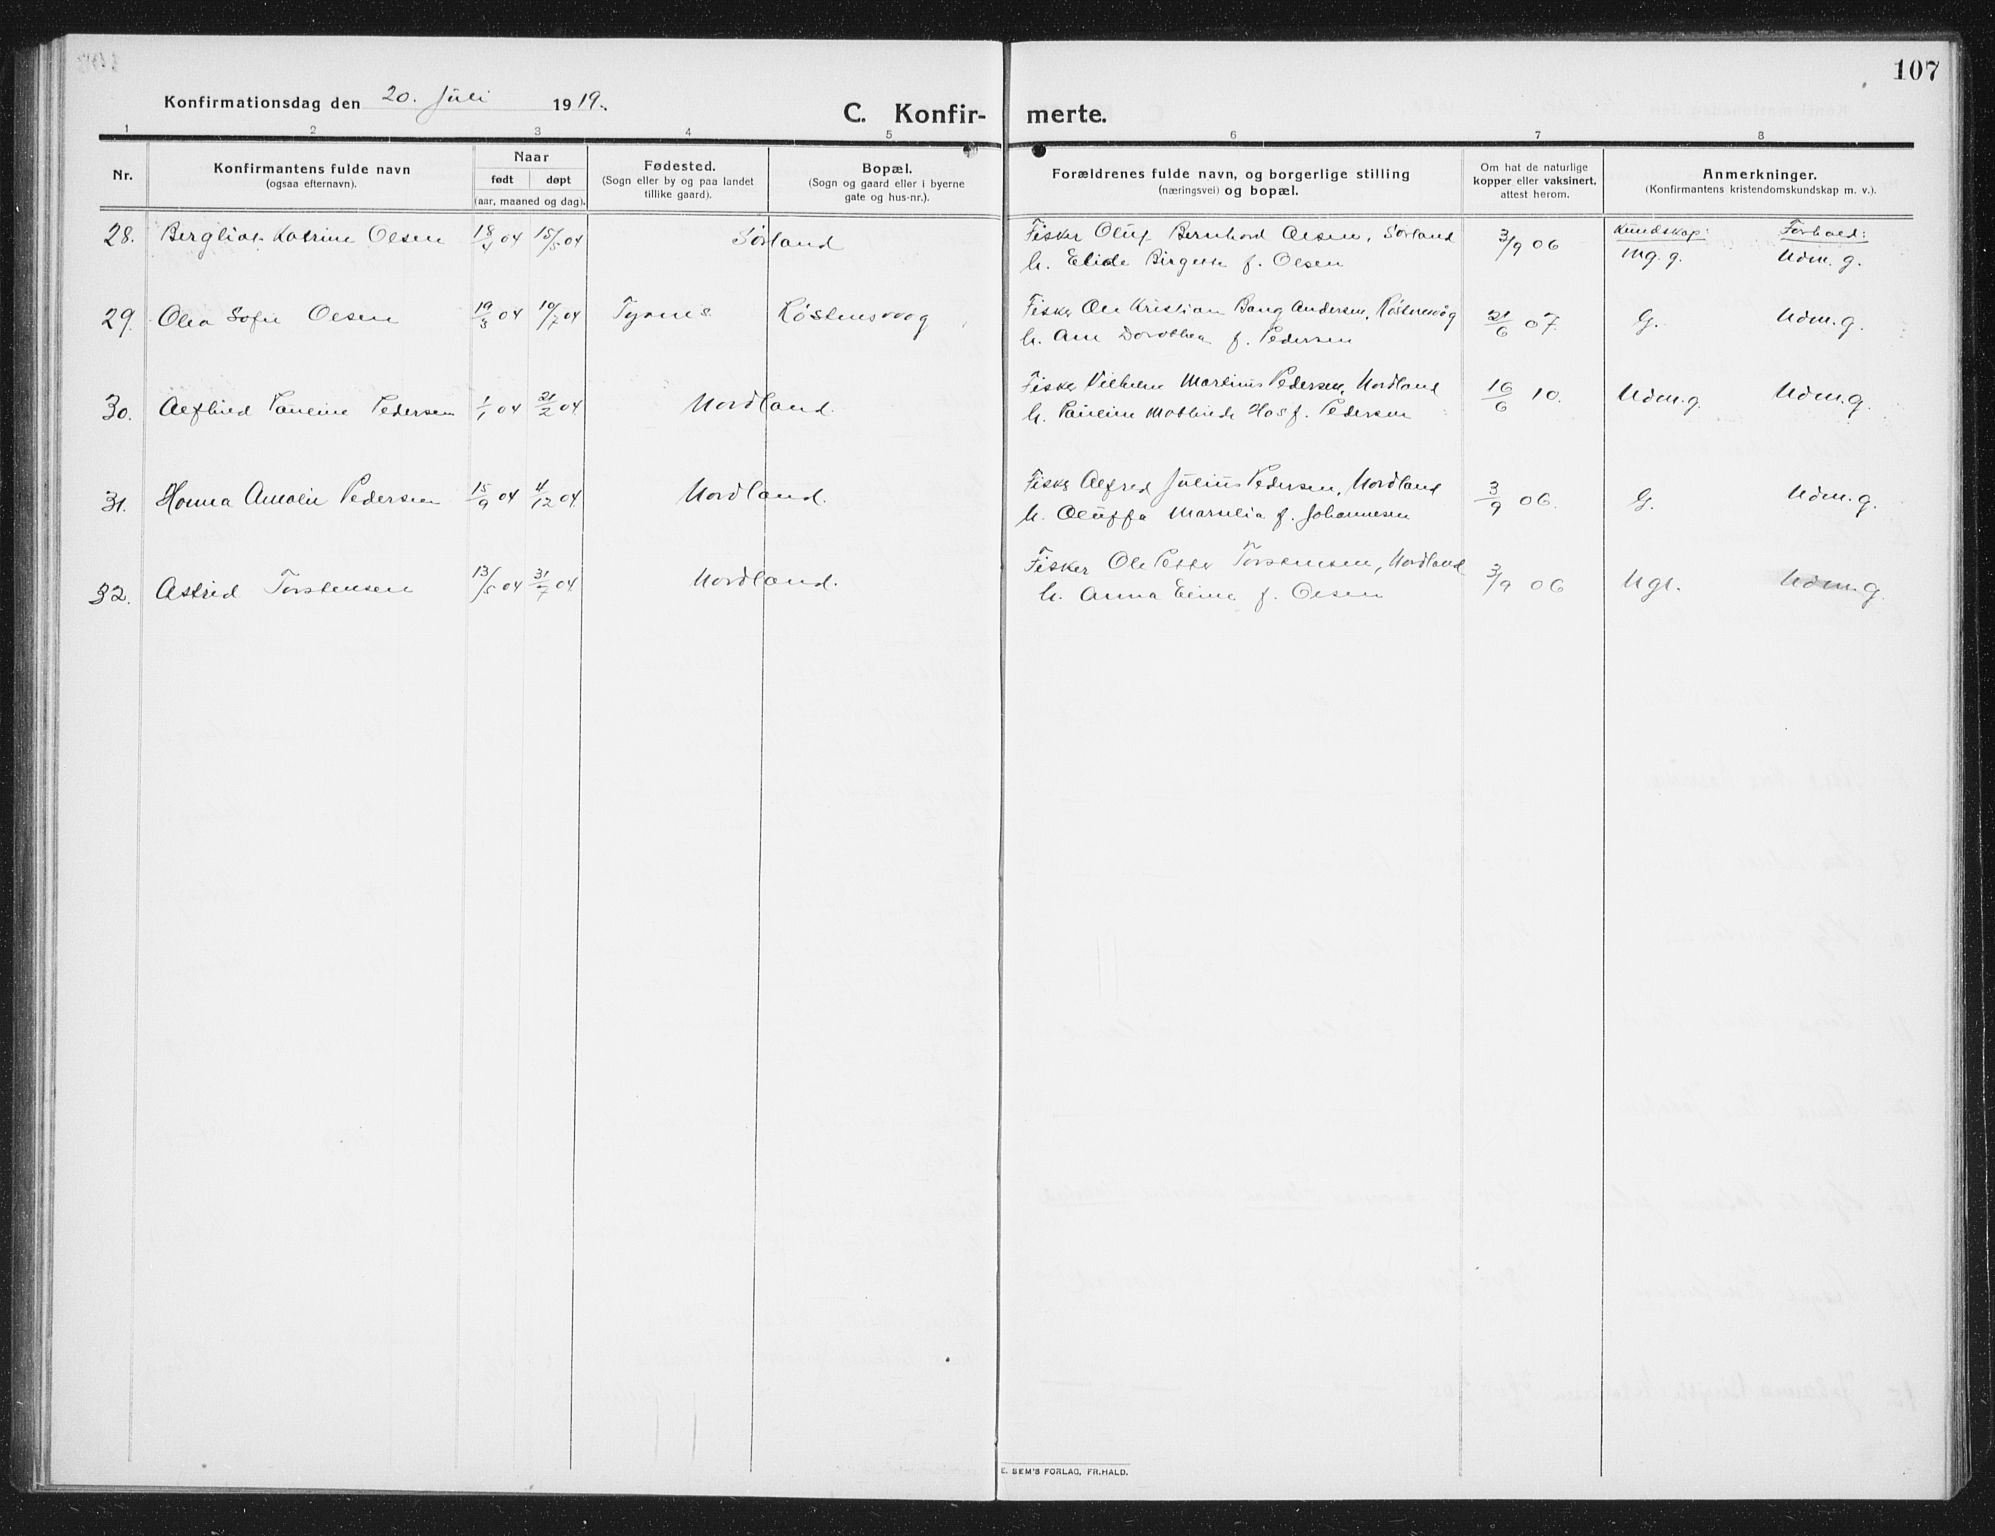 107
Konfirmationsdag den 20. Juli 1919.
C. Konfir- merte.
1 2 3 4 5 6 7 8
Nr.
Konfirmantens fulde navn
(ogsaa efternavn).
Naar
født døpt
(aar, maaned og dag).
Fødested.
(Sogn eller by og paa landet
tillike gaard).
Bopæl.
(Sogn og gaard eller i byerne
gate og hus-nr.).
Forældrenes fulde navn, og borgerlige stilling
(næringsvei) og bopæl.
Om hat de naturlige
kopper eller vaksinert,
attest herom.
Anmerkninger.
(Konfirmantens kristendomskundskap m. v.).
Kundskap: Forhold:
28. Bergliot Katrine Olsen 18/4 04 15/5 04 Sørland Fisker Oluf Bernhard Olsen, Sørland 3/9 06 Mg. g. Udm. g.
h. Elide Birgette f. Olsen
29. Olea Sofie Olsen 19/3 04 10/7 04 Tyvnes Røstnesvåg Fisker Ole Kristian Bang Andersen, Røstnesvåg 21/6 07. G. Udm. g.
h. Ane Dorothea f. Pedersen
30. Alfhild Pauline Pedersen 1/1 04 21/2 04 Nordland. Fisker Vilhelm Martinus Pedersen, Nordland 16/6 10. Udm. g. Udm. g.
h. Pauline Mathinde f. Pedersen
31. Hanna Amalie Pedersen 15/9 04 4/12 04. Nordland. Fisker Alfred Julius Pedersen, Nordland 3/9 06. G. Udm. g.
h. Oluffa Marselia f. Johannesen
32. Astrid Torstensen 13/5 04 31/7 04. Nordland. Fisker Ole Petter Torstensen, Nordland 3/9 06 Mgt. Udm g.
h. Anna Eline f. Olsen
E. SEM'S FORLAG, FR.HALD.